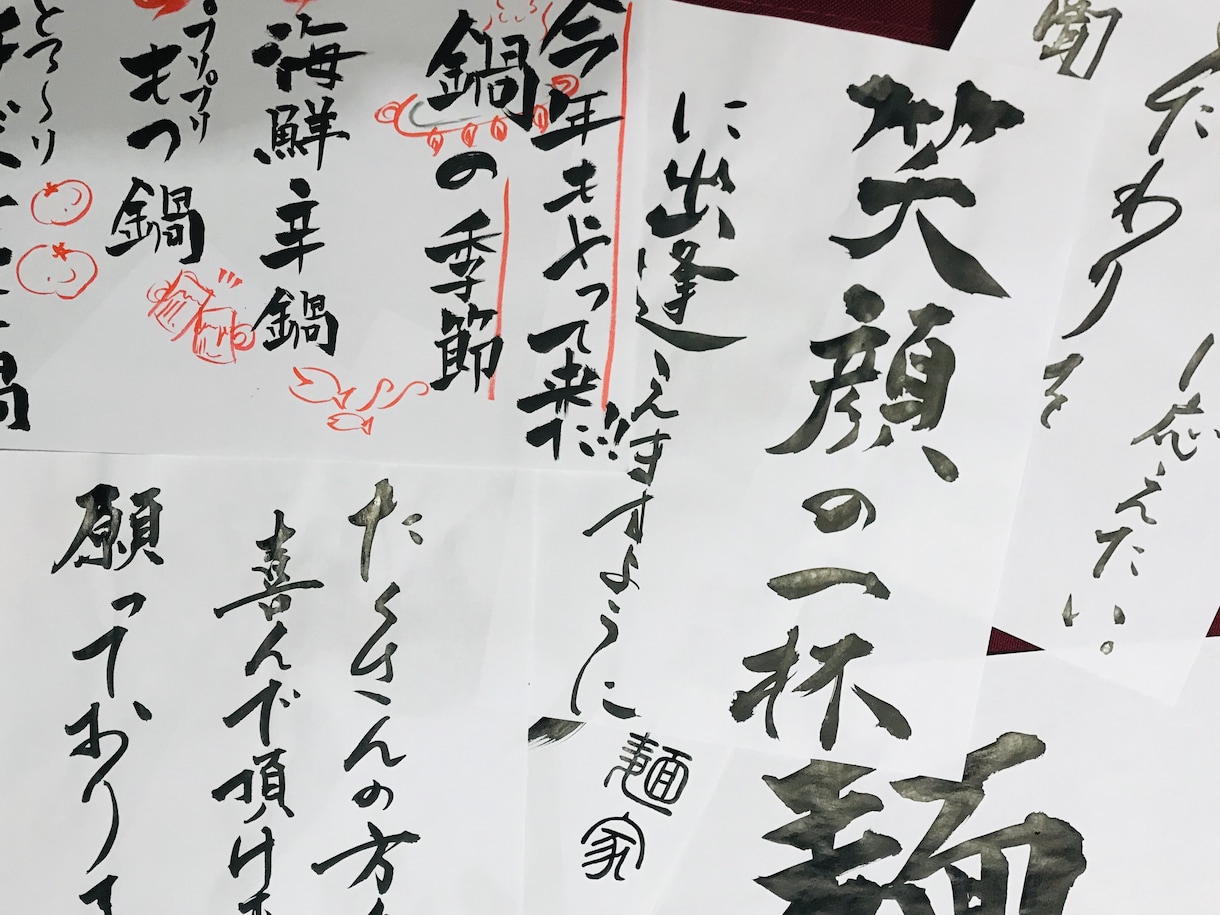 応えたい。
たわりを
聞
笑顔の一杯
に出逢えますように
麺家
麺
今年もやって来た!!
鍋の季節
海鮮辛鍋
プリプリ
もつ鍋
とろ〜り
たくさんの方
喜んで頂け
願っており